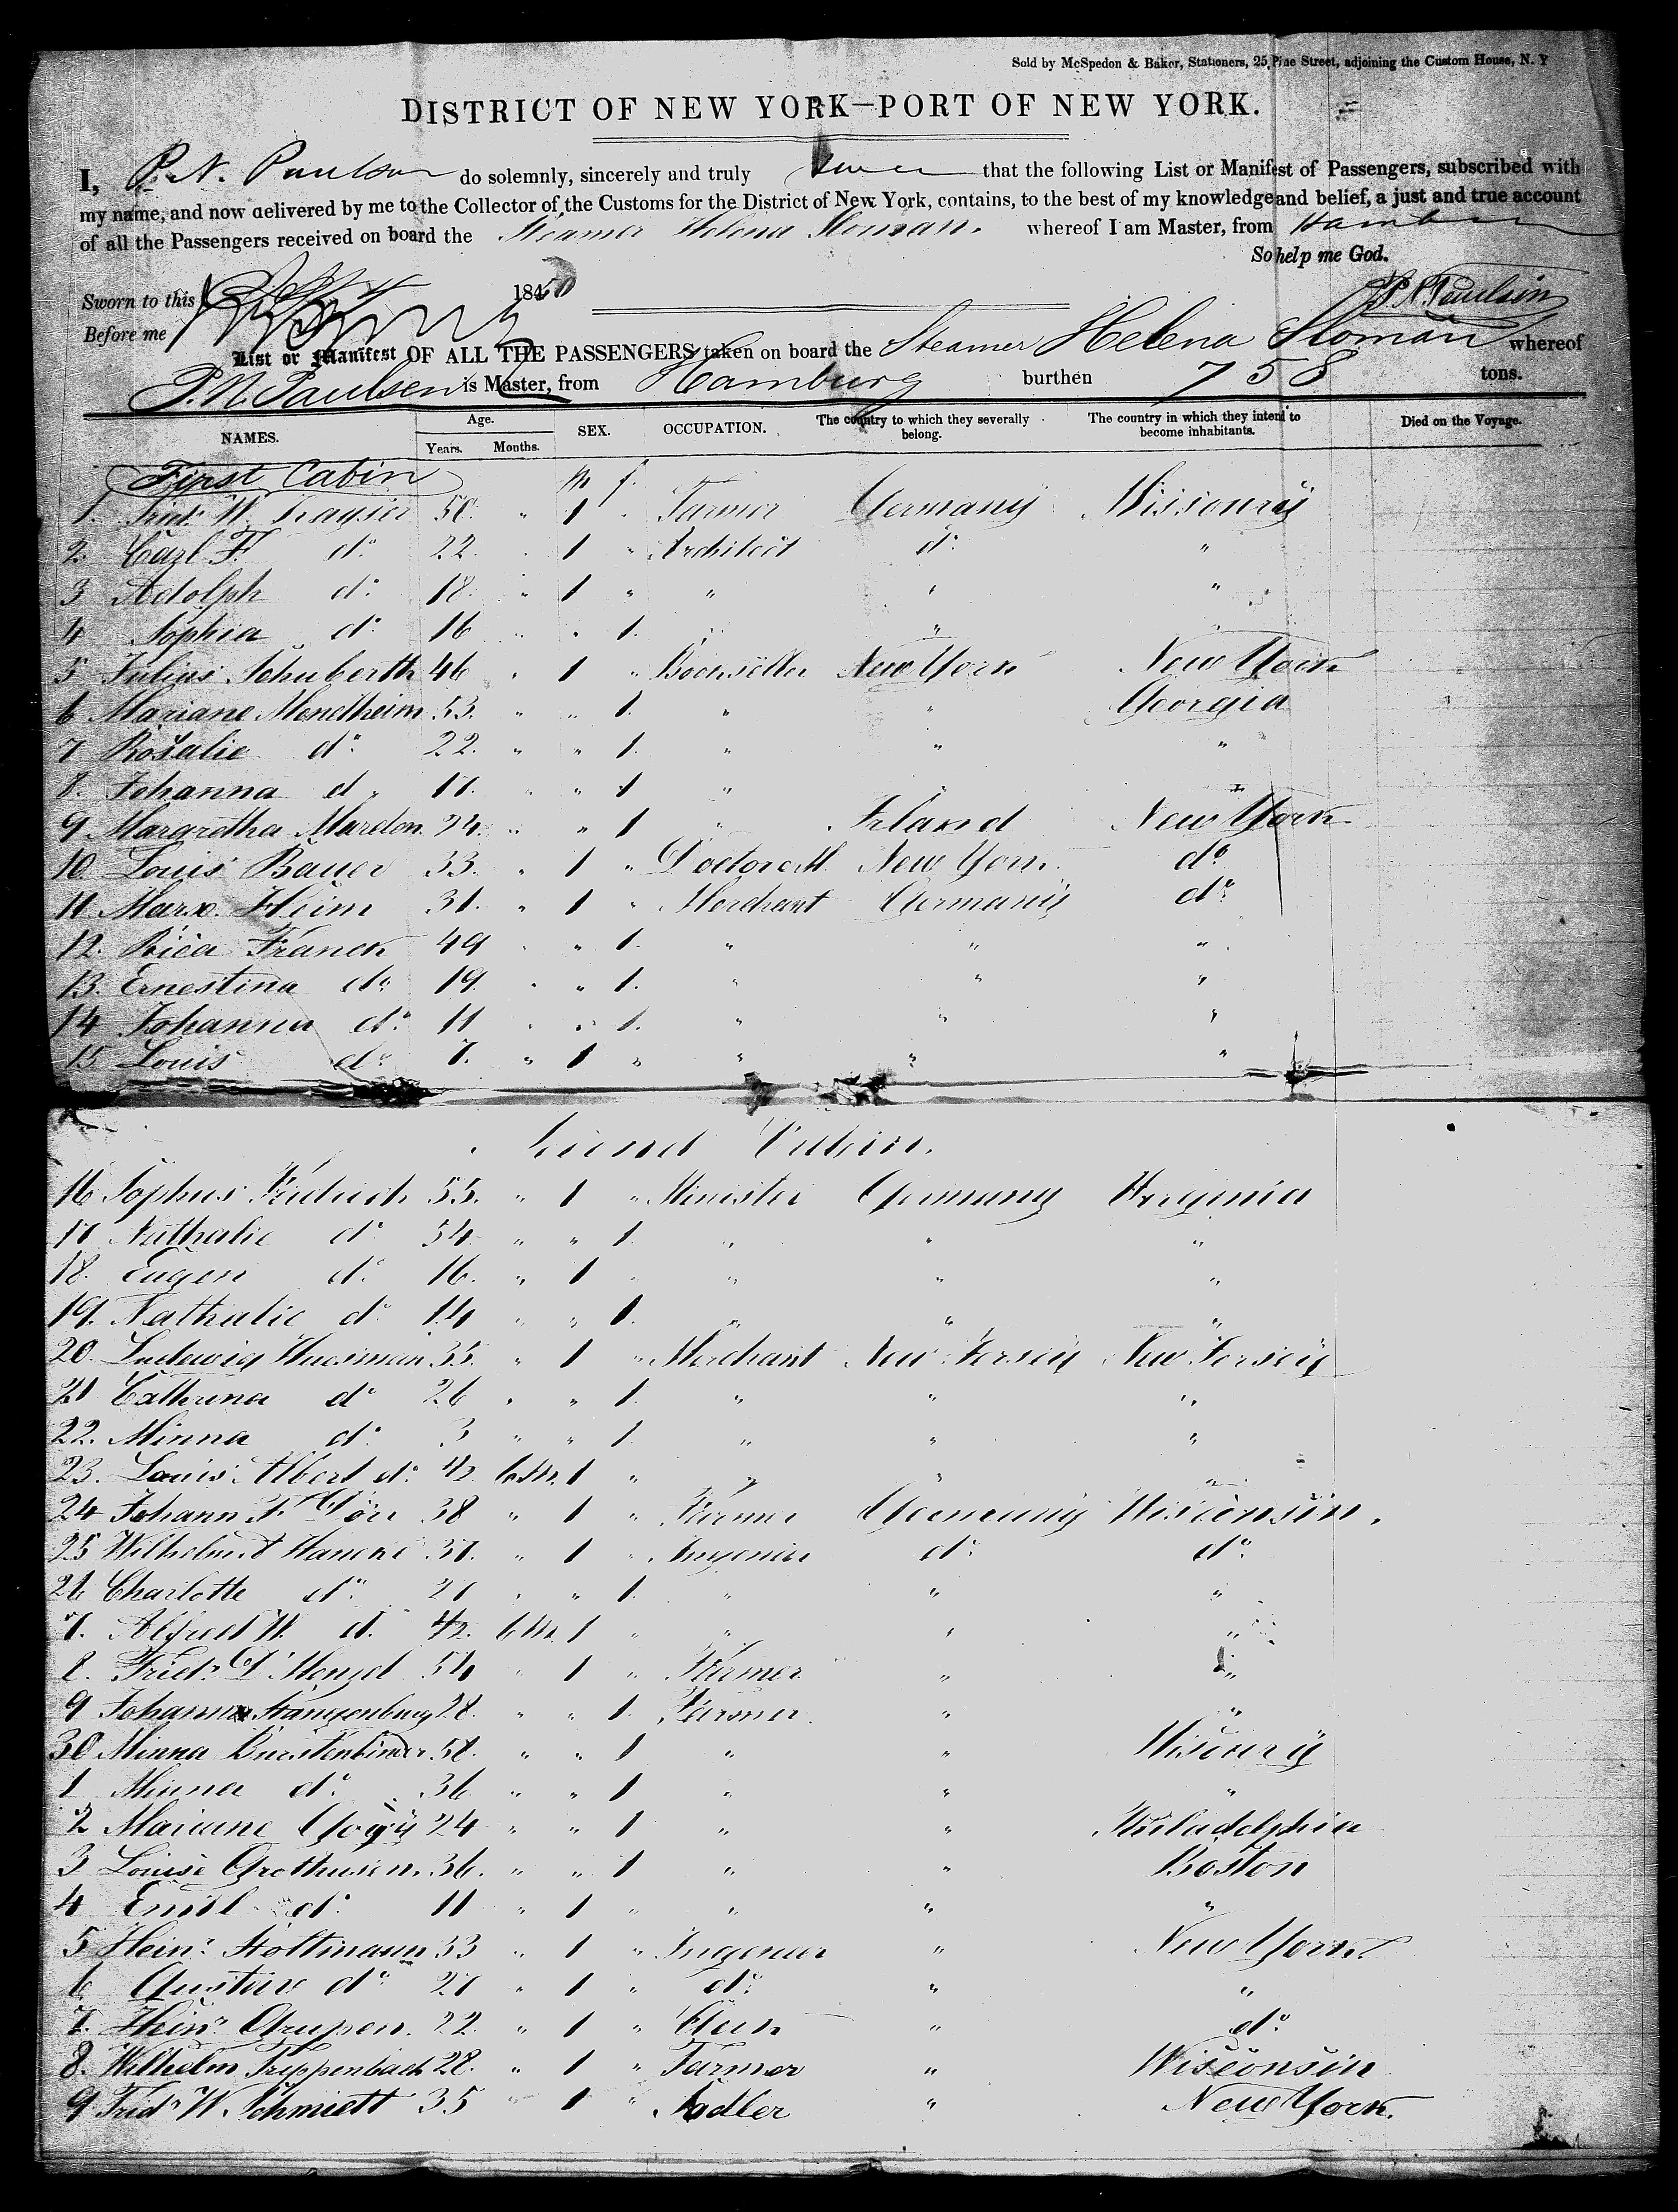 Sold by McSpedon & Baker, Stationers, 25 Pine Street, adjoining the Custom House, N. Y
DISTRICT OF NEW YORK—PORT OF NEW YORK.
I, P. N. Paulsen do solemnly, sincerely and truly swear that the following List or Manifest of Passengers, subscribed with
my name, and now delivered by me to the Collector of the Customs for the District of New York, contains, to the best of my knowledge and belief, a just and true account
of all the Passengers received on board the Steamer Helena Sloman. whereof I am Master, from Hamburg
So help me God.
Sworn to this 1850 P. N. Paulsen
Before me
List or Manifest OF ALL THE PASSENGERS taken on board the Steamer Helena Sloman whereof
P. N. Paulsen is Master, from Hamburg burthen 758 tons.
NAMES. Age. Years. Months. SEX. OCCUPATION. The country to which they severally belong. The country in which they intend to become inhabitants. Died on the Voyage.
First Cabin m f.
1. Fried. W. Kayser 50. " 1 " Farmer Germany Missoury
2. Carl F. do. 22. " 1 " Architect do. "
3 Adolph do. 18. " 1 " " " "
4 Sophia do. 16 " " 1. " " "
5 Julius Schuberth 46 " 1 " Bookseller New York New York
6 Mariane Mendheim 53. " " 1. " " Georgia
7 Rosalie do. 22. " " 1. " " "
8. Johanna do 17. " " 1 " " "
9 Margretha Mardon 24. " " 1 " Irland New York
10 Louis Bauer 33. " 1 " Doctore M. New York. do
11 Marx. Heim 31. " 1 " Merchant Germany do.
12. Rica Franck 49 " " 1. " " "
13. Ernestina do. 19. " " 1. " " "
14 Johanna do. 11 " " 1. " " "
15 Louis do. 7. " 1 " " " "
Second Cabin.
16 Sophus Fridrich 55. " 1 " Minister Germany Virginia
17 Nathalie do 54. " " 1. " " "
18. Eugen do. 16. " 1 " " " "
19. Nathalie do 14 " " 1. " " "
20. Ludewig Huesman 35. " 1 " Merchant New Jersey New Jersey
21 Cathrina do 26 " " 1. " " "
22. Minna do. 3 " " 1. " " "
23. Louis Albert do. 1/2 6 M. 1 " " " "
24 Johann F. Dörr 38 " 1 " Farmer Germany Wisconsin.
25 Wilhelm Hancke 37. " 1 " Ingenier do. do.
26 Charlotte do. 27 " " 1. " " "
7. Alfred W. do. 1/2. 6 M. 1 " " " "
8. Friedr. D. Menzel 54 " 1 " Farmer " "
9 Johanna Stangenburg 28. " " 1. Farmer. " "
30 Minna 58. " " 1 " " Missoury
1 Minna do. 36 " " 1 " " "
2 Mariane 24 " " 1 " " Philadelphia
3 Louise Grothusen. 36. " " 1 " " Boston
4 Emil do. 11 " 1 " " " "
5 Hein. Stoltmann 33 " 1 " Ingenier " New York
6 Gustav do. 27 " 1 " do. " "
7. Heinr. Grupen. 22. " 1 " " do.
8. Wilhelm Trippenbach 28. " 1 " Farmer " Wisconsin
9 Fridr. W. Schmidt 35 " 1 " Sadler " New York.